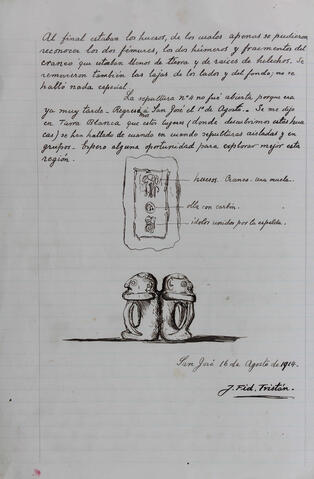 Al final estaban los huesos, de los cuales apenas se pudieron
reconocer los dos fémures, los dos húmeros y fragmentos del
craneo que estaban llenos de tierra y de raices de helechos. Se
removieron también las lajas de los lados y del fondo; no se
halló nada especial.
La sepultura nº 4 no fué abierta porque era
ya muy tarde. Regresé a San José el 1º de Agosto. Se me dijo
en Tierra Blanca que estos lugares (donde descubrimos estas huacas)
se han hallado de cuando en cuando sepulturas aisladas y en
grupos. Espero alguna oportunidad para explorar mejor esta
región.
huesos. Craneo. una muela.
olla con carbón.
ídolos unidos por la espalda.
San José 16 de Agosto de 1914.
J. Fid. Tristán.